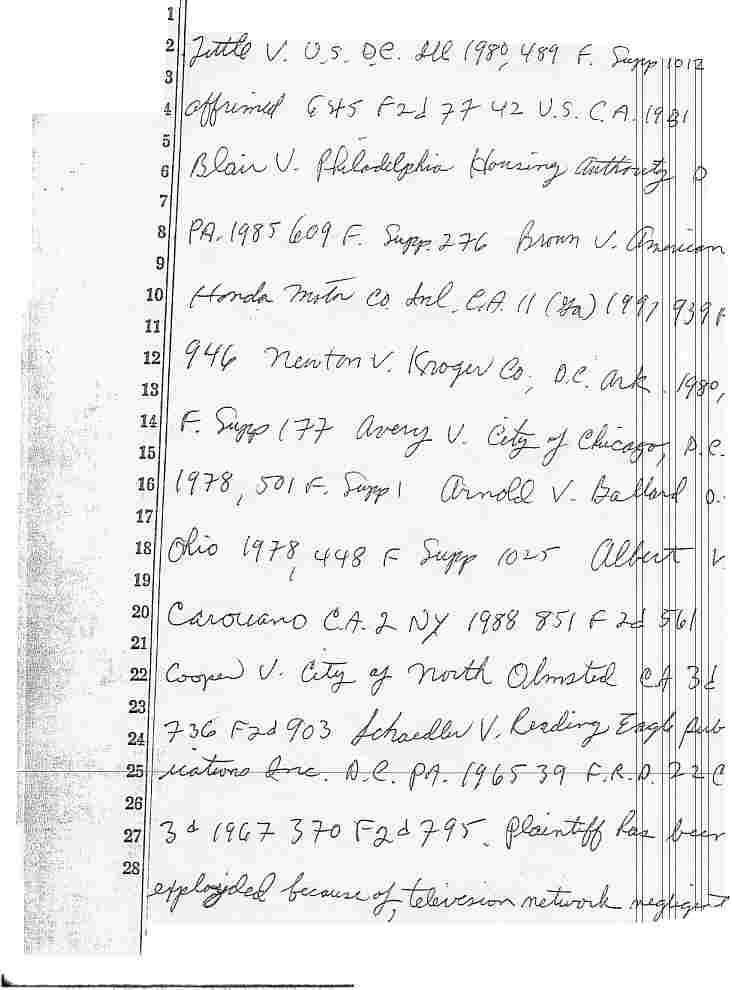 1
2 Tuttle V. U.S. D.C. Ill 1980, 489 F. Supp 1012
3
4 affrimed 645 F2d 77 42 U.S. C.A. 1981
5
6 Blair V. Philadelphia Housing Authority D
7
8 PA. 1985 609 F. Supp. 276 Brown V. American
9
10 Honda Motor Co Inc. C.A. 11 (Ga) 1991 939 F
11
12 946 Newton V. Kroger Co, D.C. Ark. 1980,
13
14 F. Supp 177 Avery V. City of Chicago, D.C.
15
16 1978, 501 F. Supp 1 Arnold V. Ballard D.
17
18 Ohio 1978, 448 F Supp 1025 Albert V
19
20 Carovano C.A. 2 NY 1988 851 F 2d 561
21
22 Cooper V. City of North Olmsted CA 3d
23
24 736 F2d 903 Schaedler V. Reading Eagle Pub
25 ications Inc. D.C. PA. 1965 39 F.R.D. 22 C
26
27 3d 1967 370 F2d 795. Plaintiff has been
28
because of, television network negligent